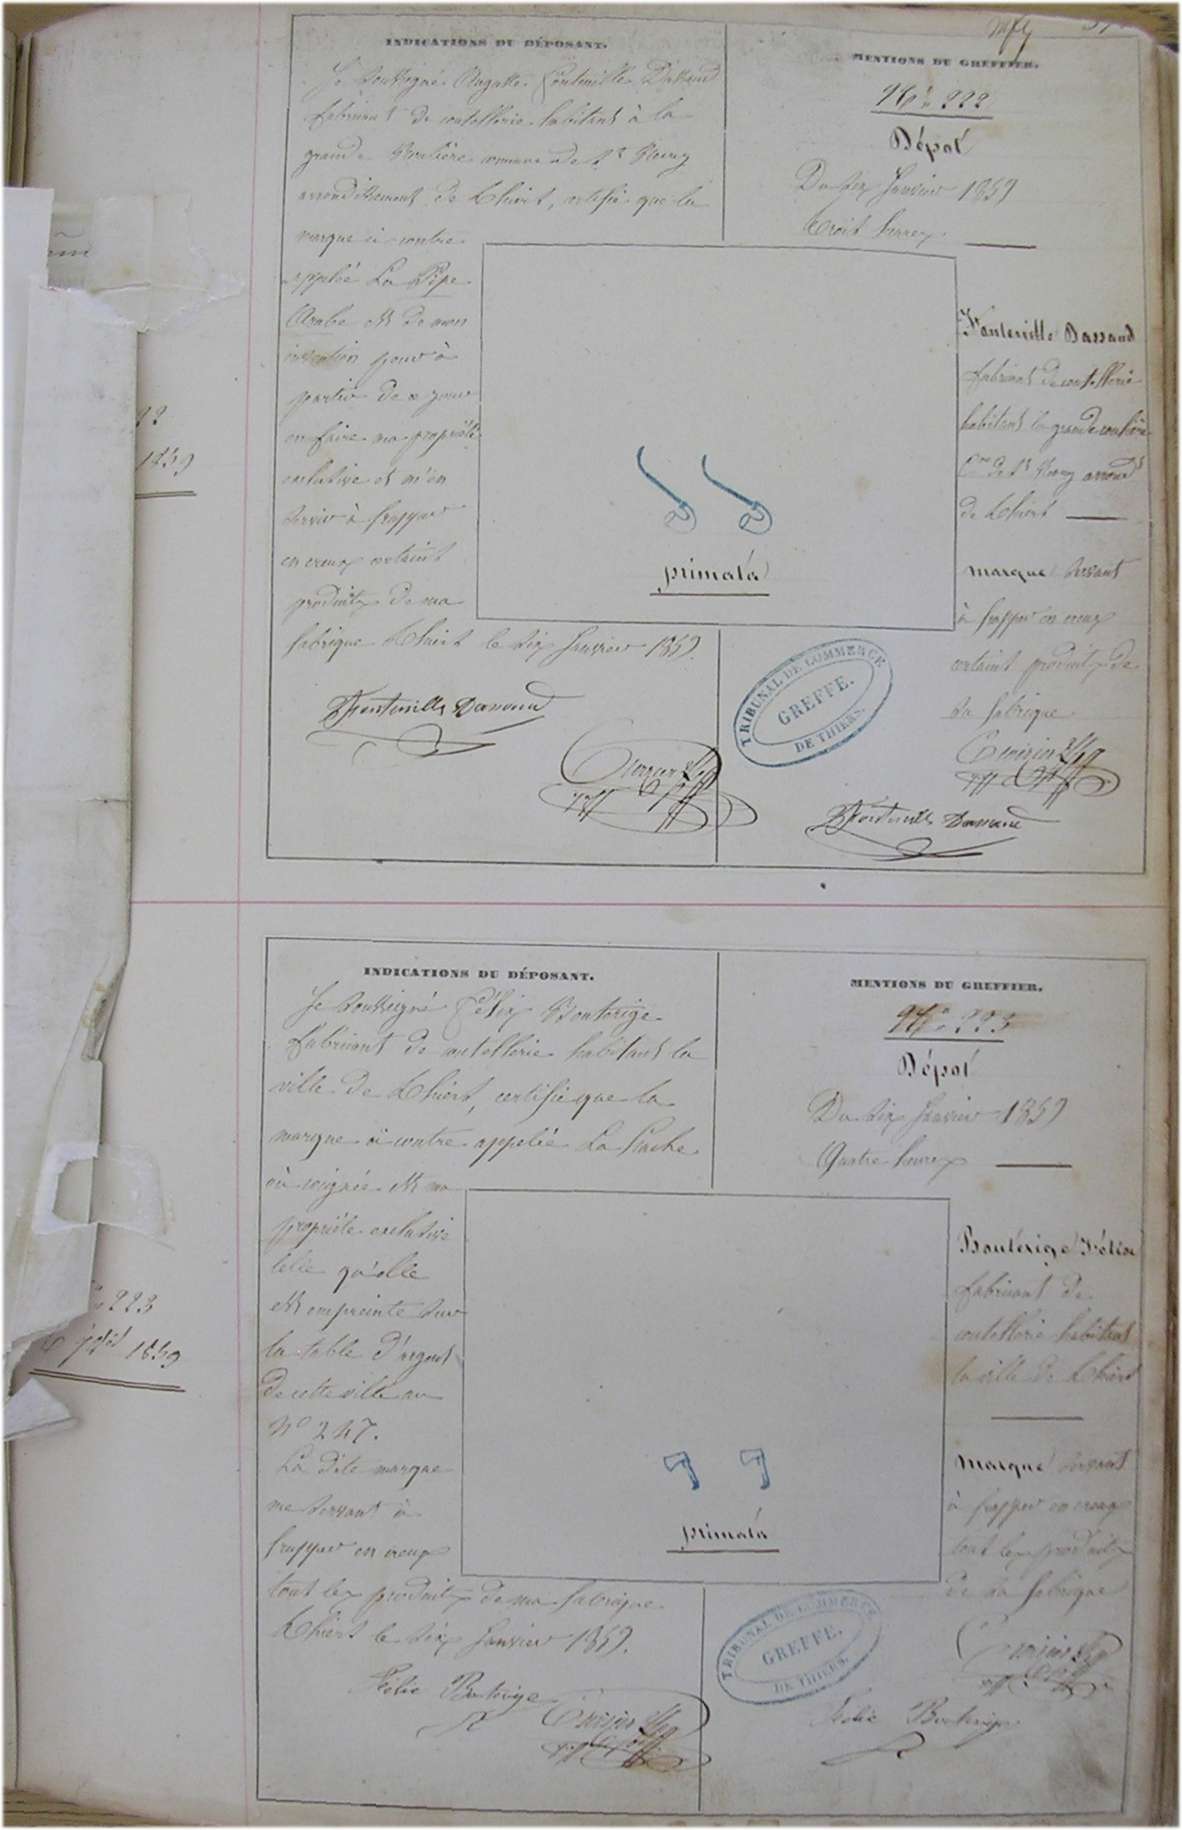 INDICATIONS DU DÉPOSANT.
Je soussigné Augatte Fontenille Dassaud
fabricant de coutellerie habitant à la
grande commune de St Remy
arrondissement de Thiers, certifie que la
marque ci contre
appelée La Pipe
Arabe est de mon
invention pour à
partir de ce jour
en faire ma propriété
exclusive et m'en
servir à frapper
en creux certains
produits de ma
fabrique Thiers le dix Janvier 1859.
Fontenille Dassaud
MENTIONS DU GREFFIER.
N° 222
Dépôt
Du dix Janvier 1859
trois heures
Fontenille Dassaud
fabricant de coutellerie
habitant la grande
Cne de St Remy arrondt
de Thiers
marque servant
à frapper en creux
certains produits de
sa fabrique
primata
TRIBUNAL DE COMMERCE
GREFFE.
DE THIERS.
Fontenille Dassaud
22
1859
INDICATIONS DU DÉPOSANT.
Je soussigné Félix Bouterige
fabricant de coutellerie habitant la
ville de Thiers, certifie que la
marque ci contre appelée La hache
est ma
propriété exclusive
telle qu'elle
est empreinte sur
la table d'argent
de cette ville au
N° 247.
La dite marque
me servant à
frapper en creux
tous les produits de ma fabrique
Thiers le dix Janvier 1859.
Félix Bouterige
MENTIONS DU GREFFIER.
N° 223
Dépôt
Du dix Janvier 1859
Quatre heures
Bouterige Félix
fabricant de
coutellerie habitant
la ville de Thiers
marque servant
à frapper en creux
tous les produits
de sa fabrique
primata
TRIBUNAL DE COMMERCE
GREFFE.
DE THIERS.
Félix Bouterige
223
1859